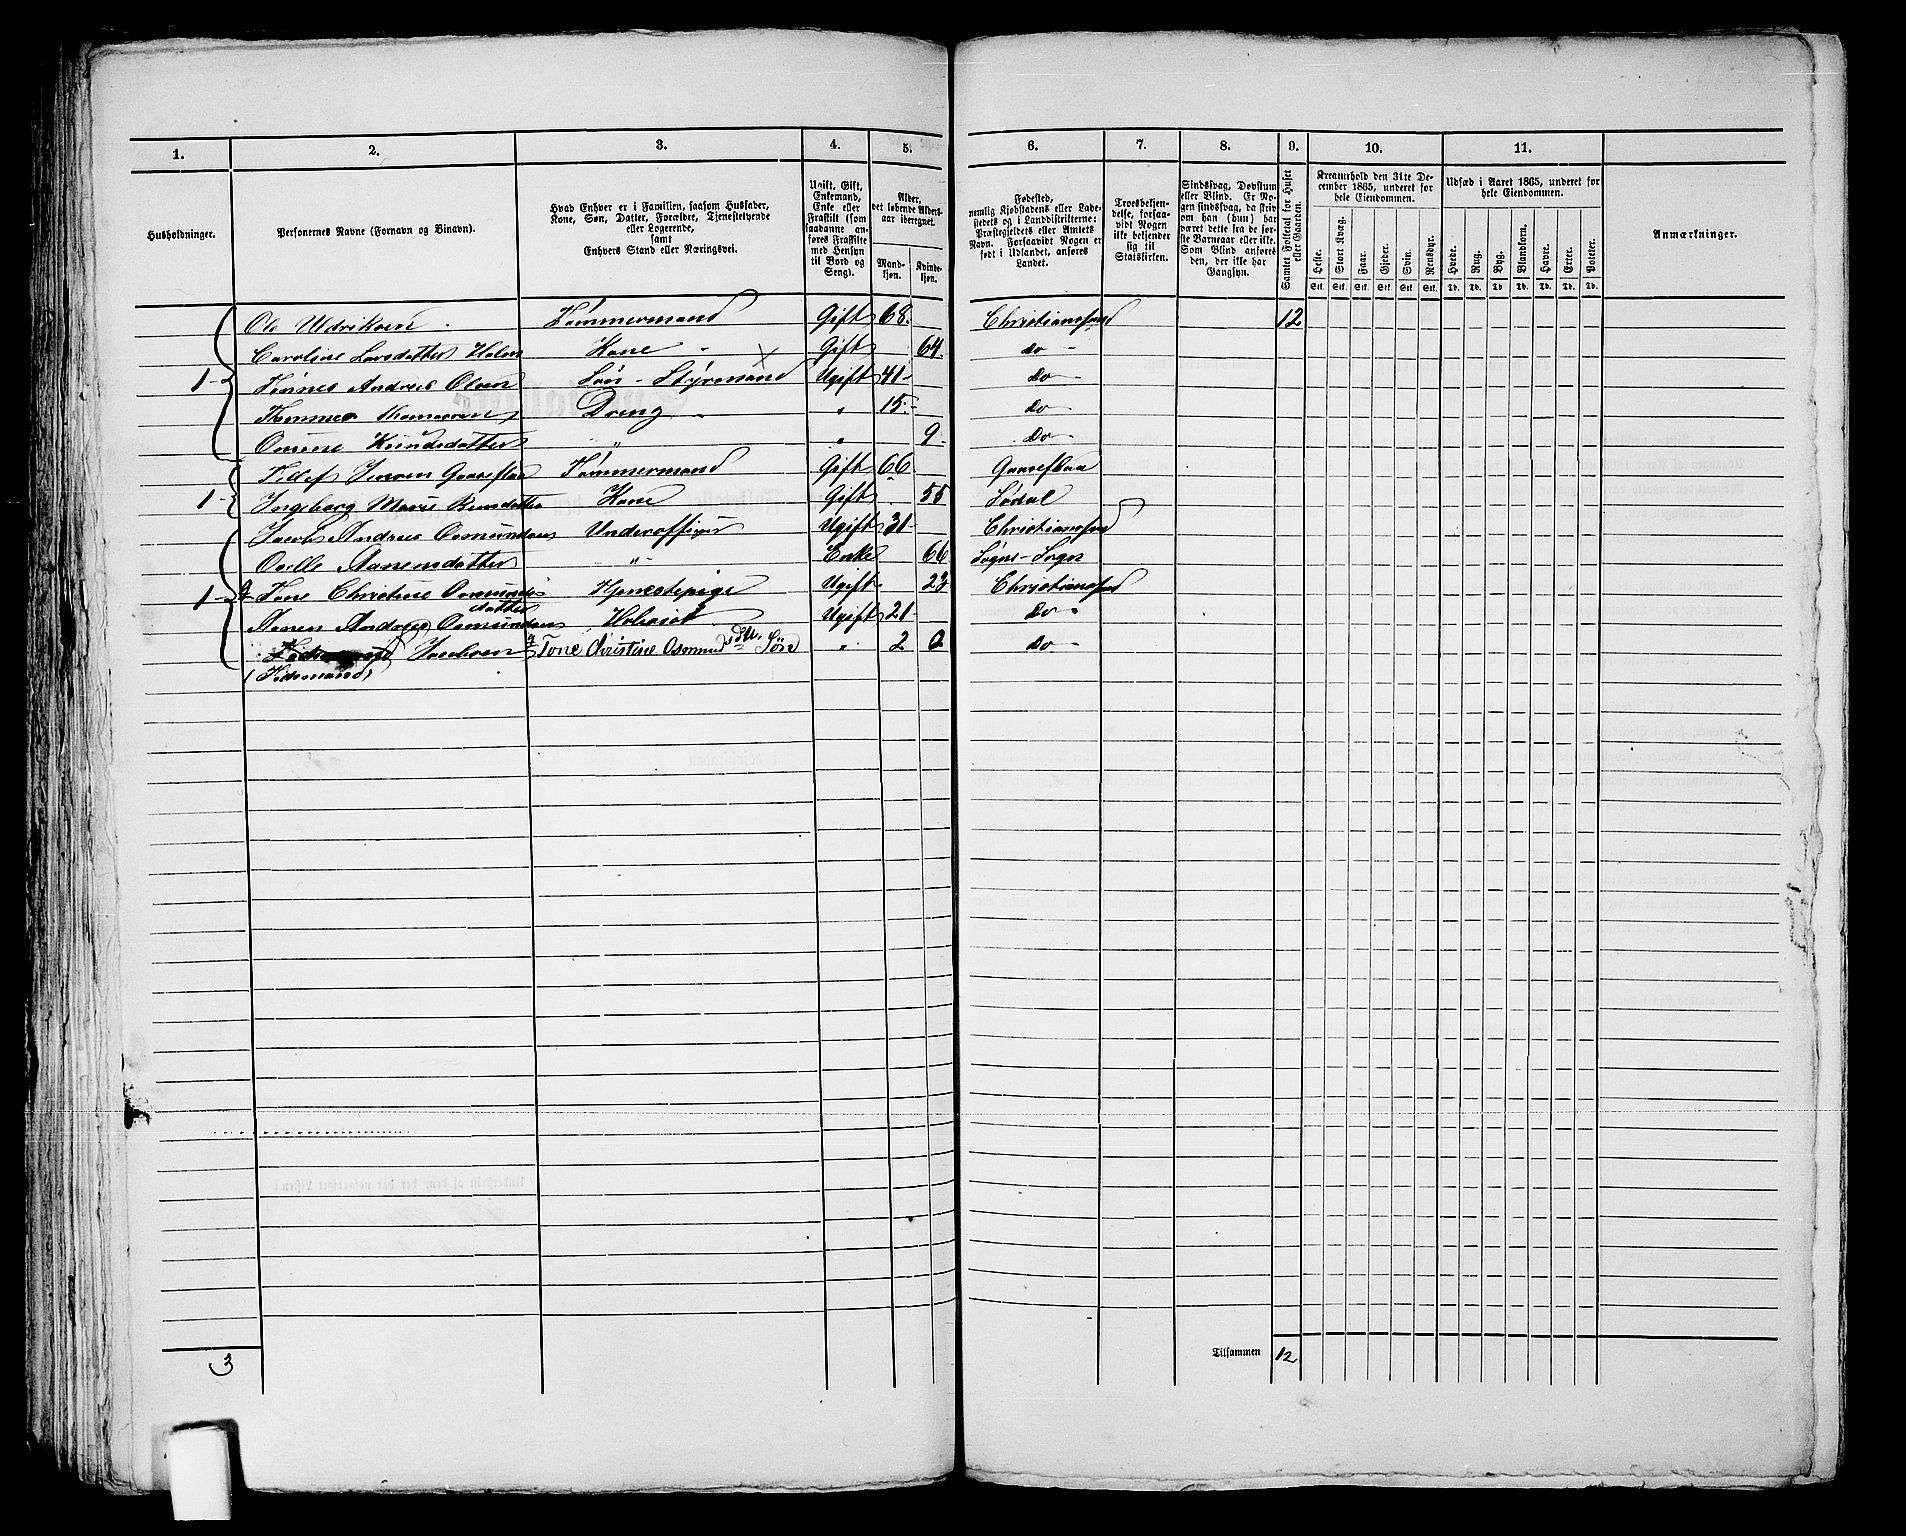 1. 2. 3. 4. 5. 6. 7. 8. 9. 10. 11.
Husholdninger.
Personernes Navne (Fornavn og Binavn).
Hvad Enhver er i Familien, saasom Husfader,
Kone, Søn, Datter, Forældre, Tjenestetyende
eller Logerende,
samt
Enhvers Stand eller Næringsvei.
Ugift, Gift,
Enkemand,
Enke eller
Fraskilt (som
saadanne an-
føres Fraskilte
med Hensyn
til Bord og
Seng).
Alder,
det løbende Alders-
aar iberegnet.
Mand-
kjøn.
Kvinde-
kjøn.
Fødested,
nemlig Kjøbstadens eller Lade-
stedets og i Landdistrikterne:
Præstegjeldets eller Amtets
Navn. Forsaavidt Nogen er
født i Udlandet, anføres
Landet.
Troesbekjen-
delse, forsaa-
vidt Nogen
ikke bekjender
sig til
Statskirken.
Sindssvag, Døvstum
eller Blind. Er No-
gen sindssvag, da skri-
ves om han (hun) har
været dette fra de før-
ste Barneaar eller ikke.
Som Blind anføres
den, der ikke har
Gangsyn.
Samlet Folketal for Huset
eller Gaarden.
Kreaturhold den 31te De-
cember 1865, underet for
hele Eiendommen.
Heste. Stort Kvæg. Faar. Gjeder. Svin. Rensdyr.
Stk. Stk. Stk. Stk. Stk. Stk.
Udsæd i Aaret 1865, underet for
hele Eiendommen.
Hvede. Rug. Byg. Blandkorn. Havre. Erter. Poteter.
Td. Td. Td. Td. Td. Td. Td.
Anmærkninger.
Ole Udriksen Tømmermand Gift 68. Christianssand 12
Caroline Larsdatter Holm Kone " Gift 64. do -
1 - Tønnes Andreas Olsen Søn - Styrmand Ugift 41 - do -
Thomas Thomassen Dreng " " 15 - do -
Knudsdatter " " 9. do -
Tellef Jensen Tømmermand Gift 66
1 - Ingeborg Marie Kone Gift 55 Lødal
Jacob Andreas Osmundsen Underofficer Ugift 31 - Christianssand
Aanensdatter - " - Enke 66 Søgne - Sogn
1 - Tone Christine Osmunds
datter Tjenestepige Ugift 23 Christianssand
Aanen Andreas Osmundsen Ugift 21 - do -
Jacobsen Tone Christine Osmundsdtr. Søn " 2 do -
3
Tilsammen 12